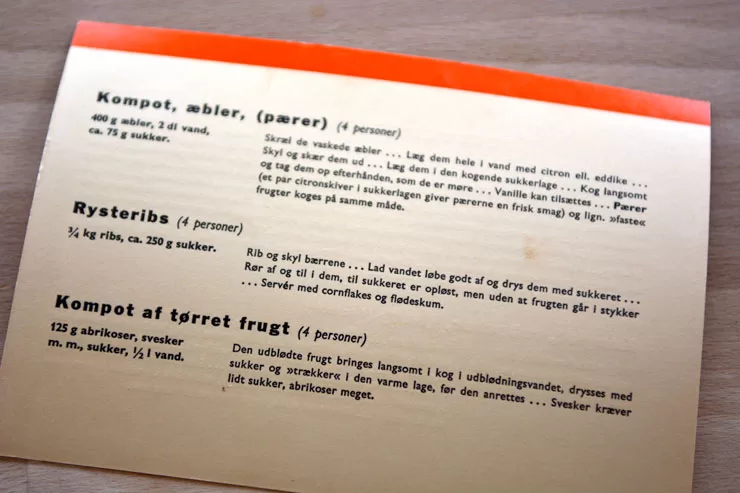 Kompot, æbler, (pærer) (4 personer)
400 g æbler, 2 dl vand,
ca. 75 g sukker.
Skræl de vaskede æbler ... Læg dem hele i vand med citron ell. eddike ...
Skyl og skær dem ud ... Læg dem i den kogende sukkerlage ... Kog langsomt
og tag dem op efterhånden, som de er møre ... Vanille kan tilsættes ... Pærer
(et par citronskiver i sukkerlagen giver pærerne en frisk smag) og lign. »faste«
frugter koges på samme måde.
Rysteribs (4 personer)
¾ kg ribs, ca. 250 g sukker.
Rib og skyl bærrene ... Lad vandet løbe godt af og drys dem med sukkeret ...
Rør af og til i dem, til sukkeret er opløst, men uden at frugten går i stykker
... Servér med cornflakes og flødeskum.
Kompot af tørret frugt (4 personer)
125 g abrikoser, svesker
m. m., sukker, ½ l vand.
Den udblødte frugt bringes langsomt i kog i udblødningsvandet, drysses med
sukker og »trækker« i den varme lage, før den anrettes ... Svesker kræver
lidt sukker, abrikoser meget.